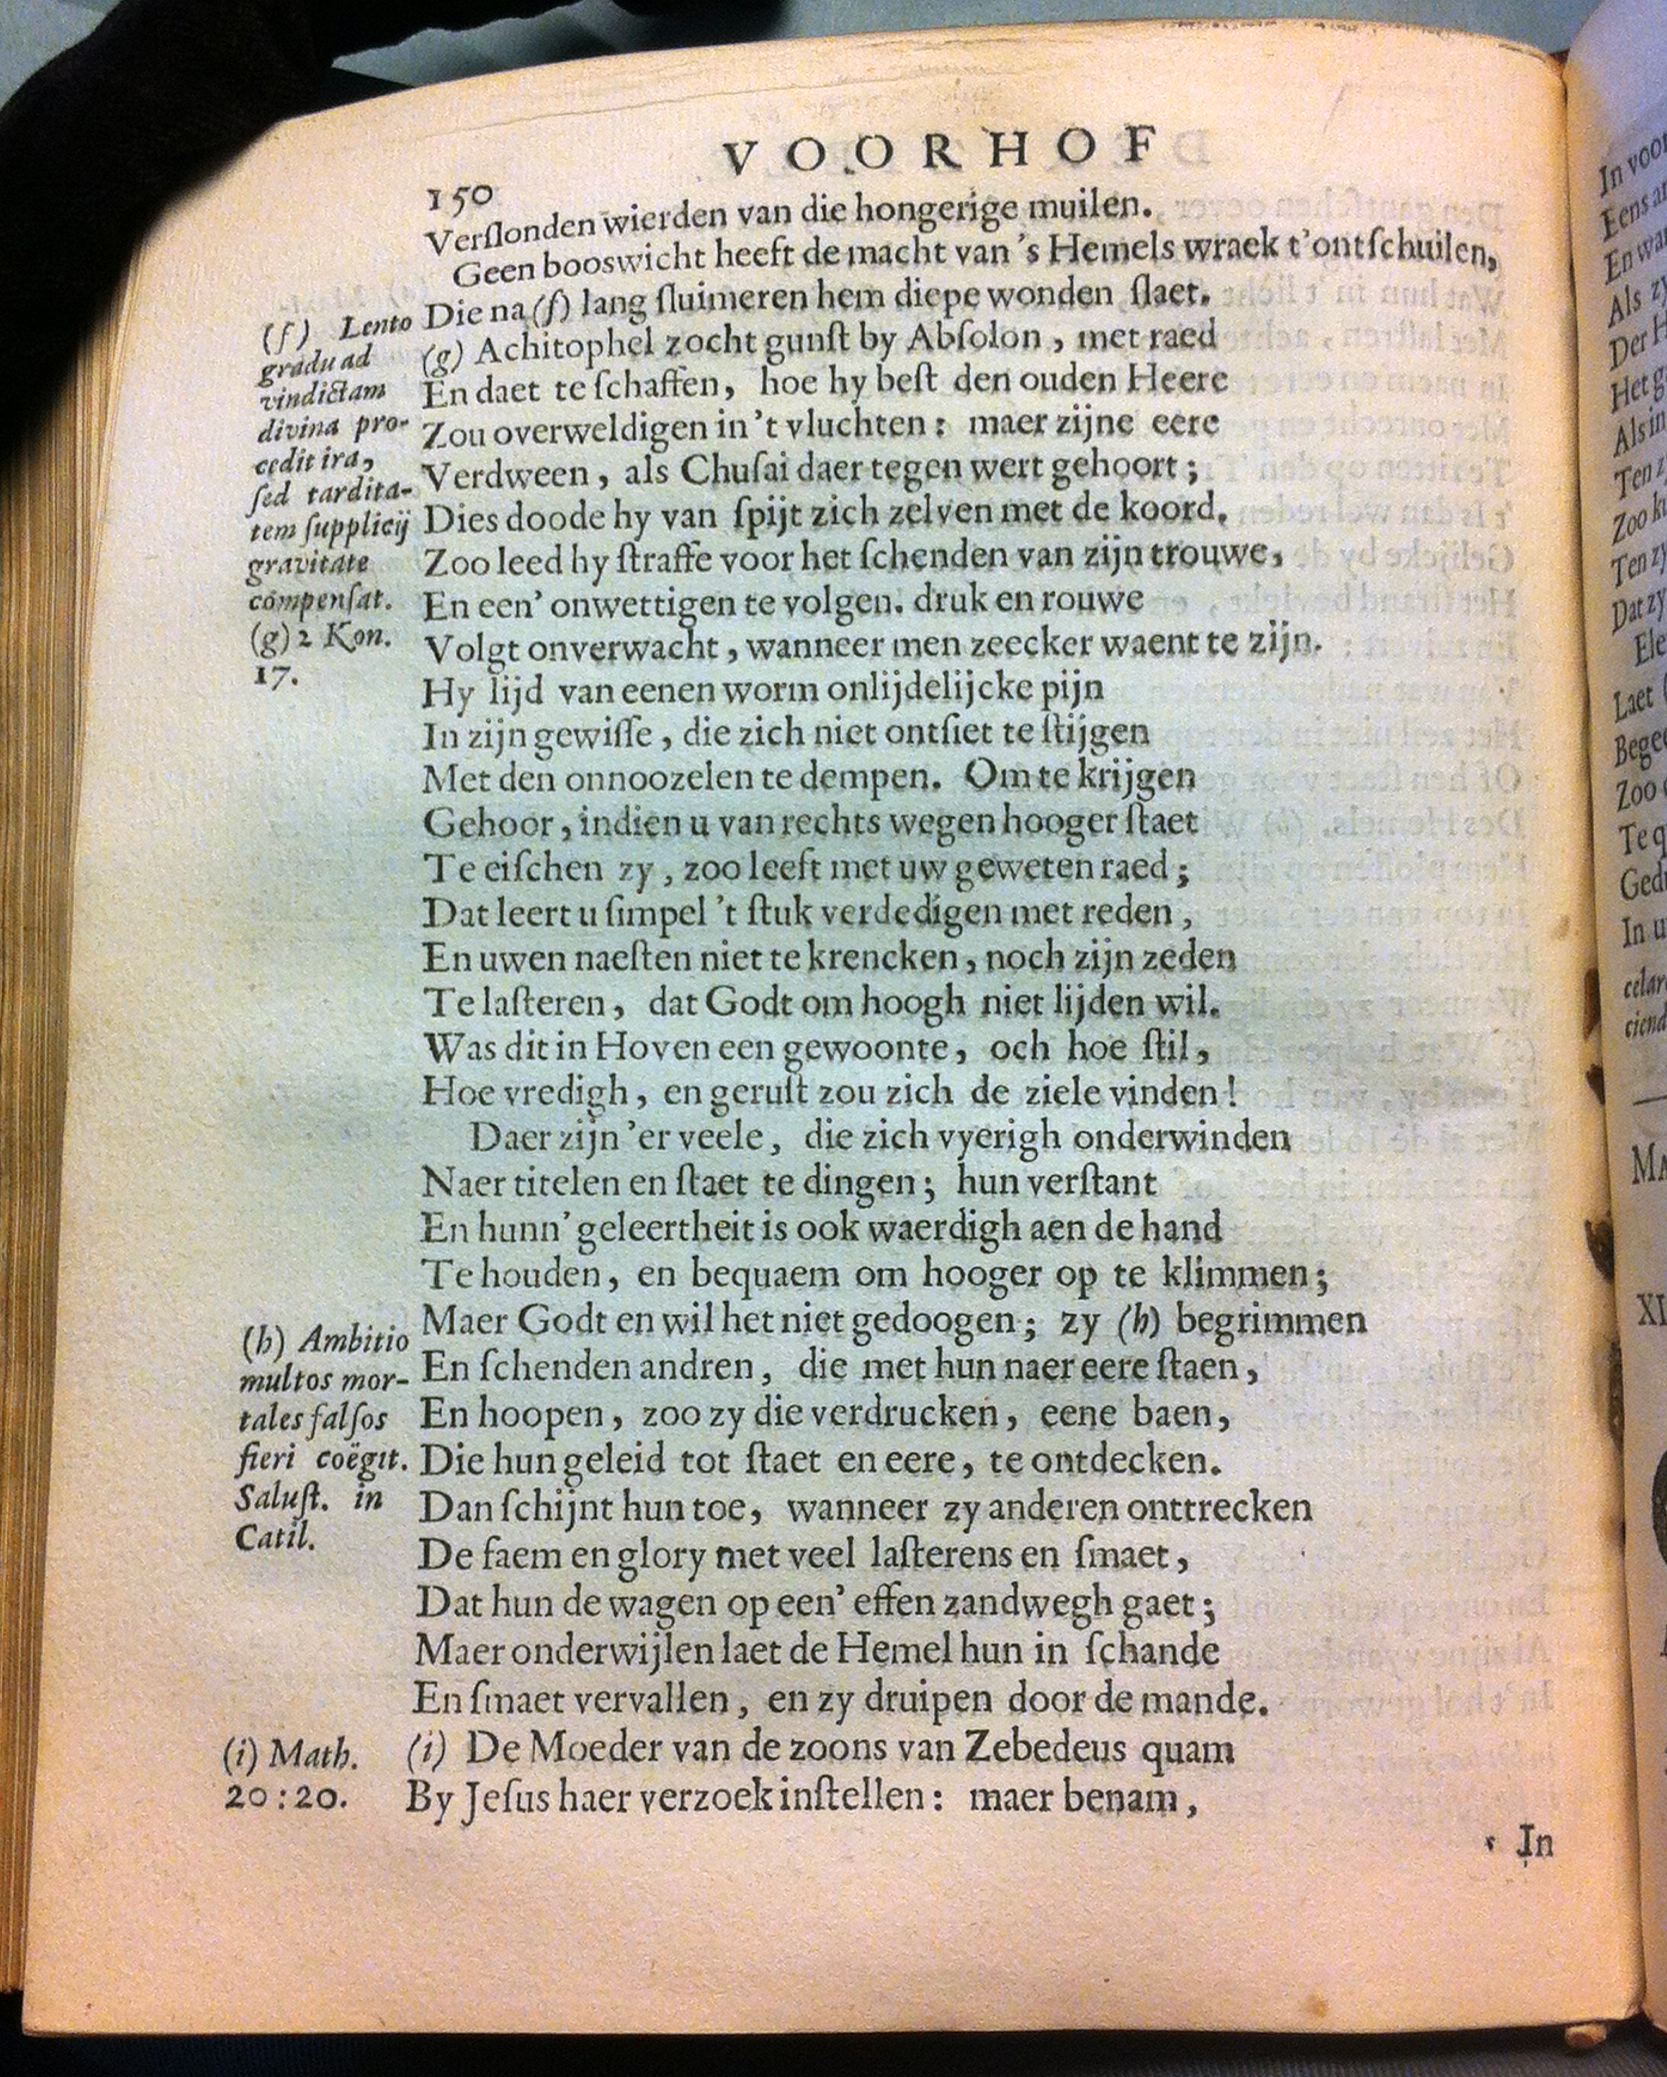 VOORHOF
150
Verſlonden wierden van die hongerige muilen.
Geen booswicht heeft de macht van 's Hemels wraek t'ontſchuilen,
Die na (f) lang ſluimeren hem diepe wonden ſlaet.
(g) Achitophel zocht gunſt by Abſolon, met raed
En daet te ſchaffen, hoe hy beſt den ouden Heere
Zou overweldigen in 't vluchten: maer zijne eere
Verdween, als Chuſai daer tegen wert gehoort;
Dies doode hy van ſpijt zich zelven met de koord.
Zoo leed hy ſtraffe voor het ſchenden van zijn trouwe,
En een' onwettigen te volgen. druk en rouwe
Volgt onverwacht, wanneer men zeecker waent te zijn.
Hy lijd van eenen worm onlijdelijcke pijn
In zijn gewiſſe, die zich niet ontſiet te ſtijgen
Met den onnoozelen te dempen. Om te krijgen
Gehoor, indien u van rechts wegen hooger ſtaet
Te eiſchen zy, zoo leeft met uw geweten raed;
Dat leert u ſimpel 't ſtuk verdedigen met reden,
En uwen naeſten niet te krencken, noch zijn zeden
Te laſteren, dat Godt om hoogh niet lijden wil.
Was dit in Hoven een gewoonte, och hoe ſtil,
Hoe vredigh, en geruſt zou zich de ziele vinden!
Daer zijn 'er veele, die zich vyerigh onderwinden
Naer titelen en ſtaet te dingen; hun verſtant
En hunn' geleertheit is ook waerdigh aen de hand
Te houden, en bequaem om hooger op te klimmen;
Maer Godt en wil het niet gedoogen; zy (h) begrimmen
En ſchenden andren, die met hun naer eere ſtaen,
En hoopen, zoo zy die verdrucken, eene baen,
Die hun geleid tot ſtaet en eere, te ontdecken.
Dan ſchijnt hun toe, wanneer zy anderen onttrecken
De faem en glory met veel laſterens en ſmaet,
Dat hun de wagen op een' effen zandwegh gaet;
Maer onderwijlen laet de Hemel hun in ſchande
En ſmaet vervallen, en zy druipen door de mande.
(i) De Moeder van de zoons van Zebedeus quam
By Jeſus haer verzoek inſtellen: maer benam,
In
(f) Lento
gradu ad
vindictam
divina pro-
cedit ira,
ſed tardita-
tem ſupplicij
gravitate
compenſat.
(g) 2 Kon.
17.
(h) Ambitio
multos mor-
tales falſos
fieri coëgit.
Saluſt. in
Catil.
(i) Math.
20:20.
In voor
Eens
En
Als zy
Der
Het
Als in
Ten
Zoo
Ten zy
Dat zy
Laet
Zoo
In
XI